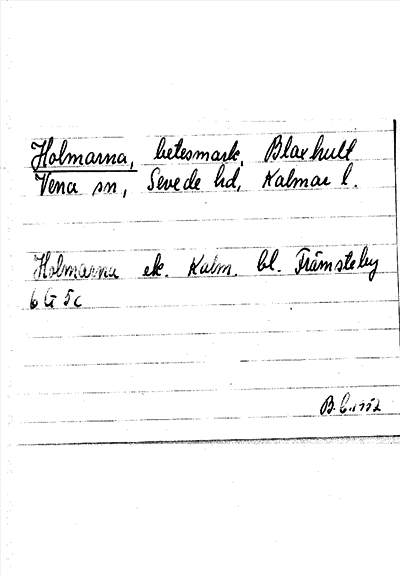 Holmarna, betesmark, Blaxhult
Vena sn, Sevede hd, Kalmar l.
Holmarna ek. Kalm. bl. Främsteby
6 G 5c